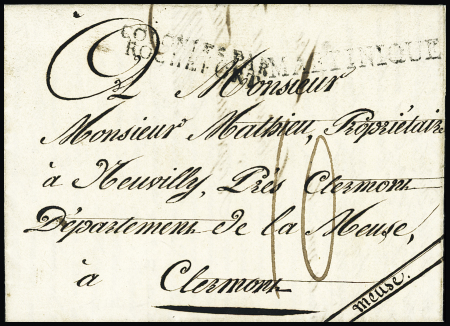 COLONIES PAR
ROCHEFORT
MARTINIQUE
A Monsieur
Monsieur Mathieu, Propriétaire
à Neuvilly, Près Clermont
Département de la Meuse,
à Clermont
10
meuse.